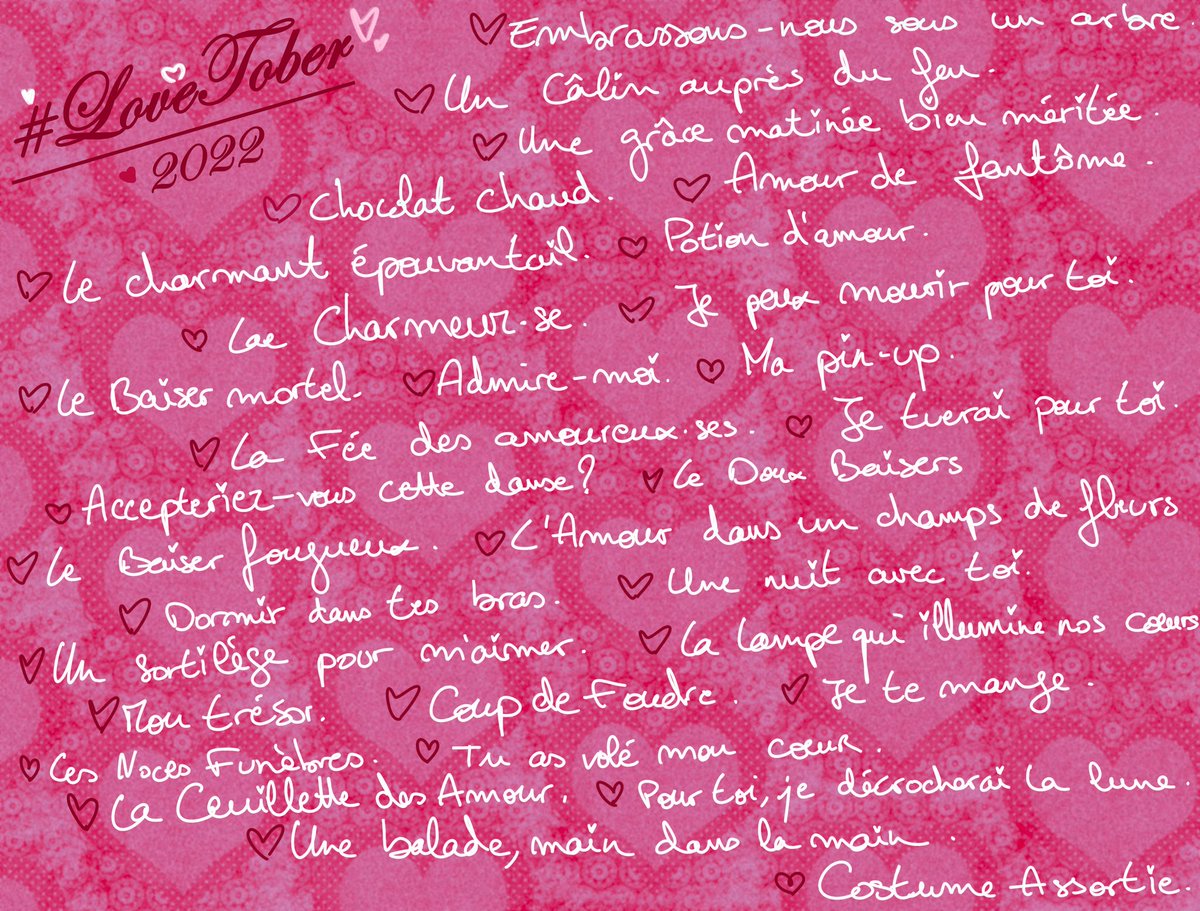 #LoveTober
2022
Embrassons-nous sous un arbre
Un Câlin auprès du feu.
Une grâce matinée bien méritée.
Chocolat chaud. Amour de fantôme.
Le charmant épouvantail. Potion d'amour.
Lae Charmeur·se. Je peux mourir pour toi.
Le Baiser mortel. Admire-moi. Ma pin-up.
La Fée des amoureux·ses. Je tuerai pour toi.
Accepteriez-vous cette danse? Le Doux Baisers
Le Baiser fougueux. L'Amour dans un champs de fleurs
Dormir dans tes bras. Une nuit avec toi.
Un sortilège pour m'aimer. La lampe qui illumine nos cœurs
Mon trésor. Coup de Foudre. Je te mange.
Les Noces Funèbres. Tu as volé mon cœur.
La Ceuillette des Amour. Pour toi, je décrocherai la lune.
Une balade, main dans la main.
Costume Assortie.